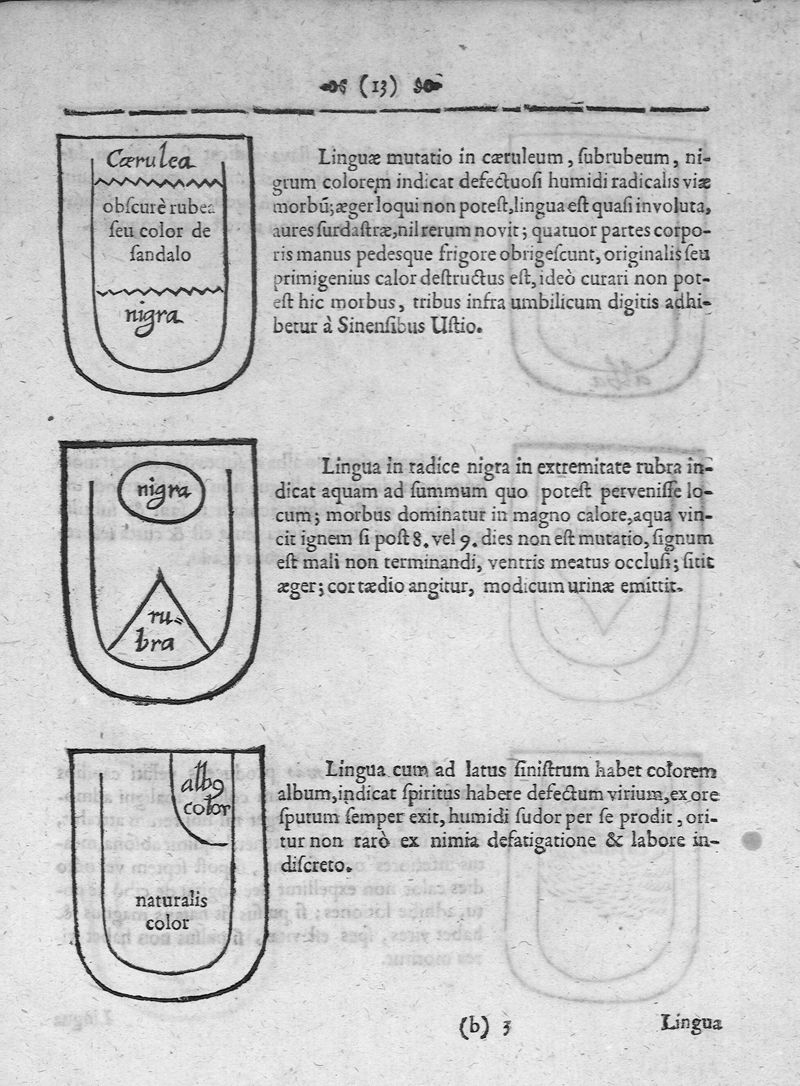 (13)
Cærulea
obſcurè rubea
ſeu color de
ſandalo
nigra
Linguæ mutatio in cæruleum, ſubrubeum, ni-
grum colorem indicat defectuoſi humidi radicalis viæ
morbū; æger loqui non poteſt, lingua eſt quaſi involuta,
aures ſurdaſtræ, nil rerum novit; quatuor partes corpo-
ris manus pedesque frigore obrigeſcunt, originalis ſeu
primigenius calor deſtructus eſt, ideò curari non pot-
eſt hic morbus, tribus infra umbilicum digitis adhi-
betur à Sinenſibus Uſtio.
nigra
ru-
bra
Lingua in radice nigra in extremitate rubra in-
dicat aquam ad ſummum quo poteſt perveniſſe lo-
cum; morbus dominatur in magno calore, aqua vin-
cit ignem ſi poſt 8. vel 9. dies non eſt mutatio, ſignum
eſt mali non terminandi, ventris meatus occluſi; ſitit
æger; cor tædio angitur, modicum urinæ emittit.
albꝯ
color
naturalis
color
Lingua cum ad latus ſiniſtrum habet colorem
album, indicat ſpiritus habere defectum virium, ex ore
ſputum ſemper exit, humidi ſudor per ſe prodit, ori-
tur non rarò ex nimia defatigatione & labore in-
diſcreto.
(b) 3
Lingua